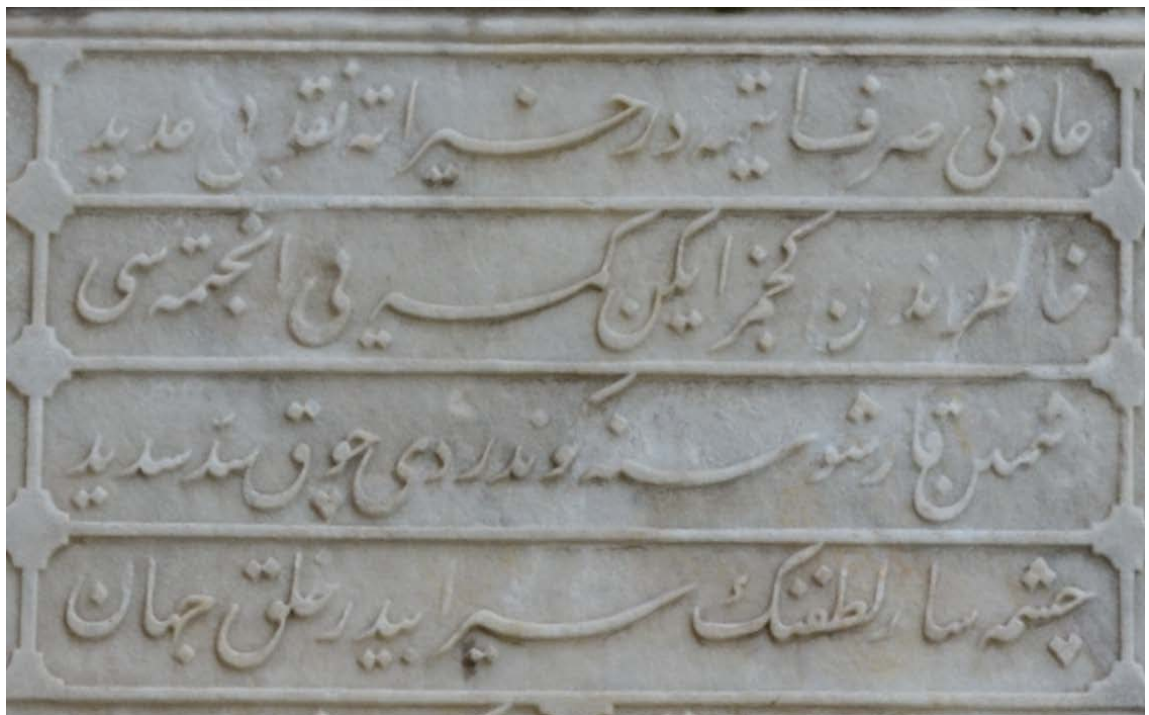 عادتی صرف ایتمه در خیراته نقد بی عدید
خاطرندن کچمز ایکن کمسیی انجتمه سی
قارشوسنه کوندردی چوق سد سدید
چشمه سار لطفنك سیر ابیدر خلق جهان